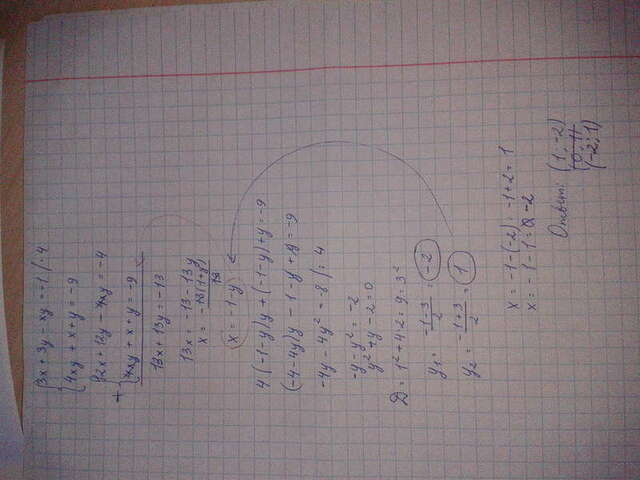 {3x + 3y - xy = -1 |·4
{4xy + x + y = -9
+ {12x + 12y - 4xy = -4
{4xy + x + y = -9
13x + 13y = -13
13x = -13 - 13y
x = -13(1+y)/13
x = -1 - y
4(-1-y)y + (-1-y) + y = -9
(-4-4y)y - 1 - y + y = -9
-4y - 4y² = -8 |:4
-y - y² = -2
y² + y - 2 = 0
D = 1² + 4·2 = 9 = 3²
y₁ = (-1-3)/2 = -2
y₂ = (-1+3)/2 = 1
x = -1-(-2) = -1+2 = 1
x = -1-1 = -2
Ответ: (1; -2)
(-2; 1)